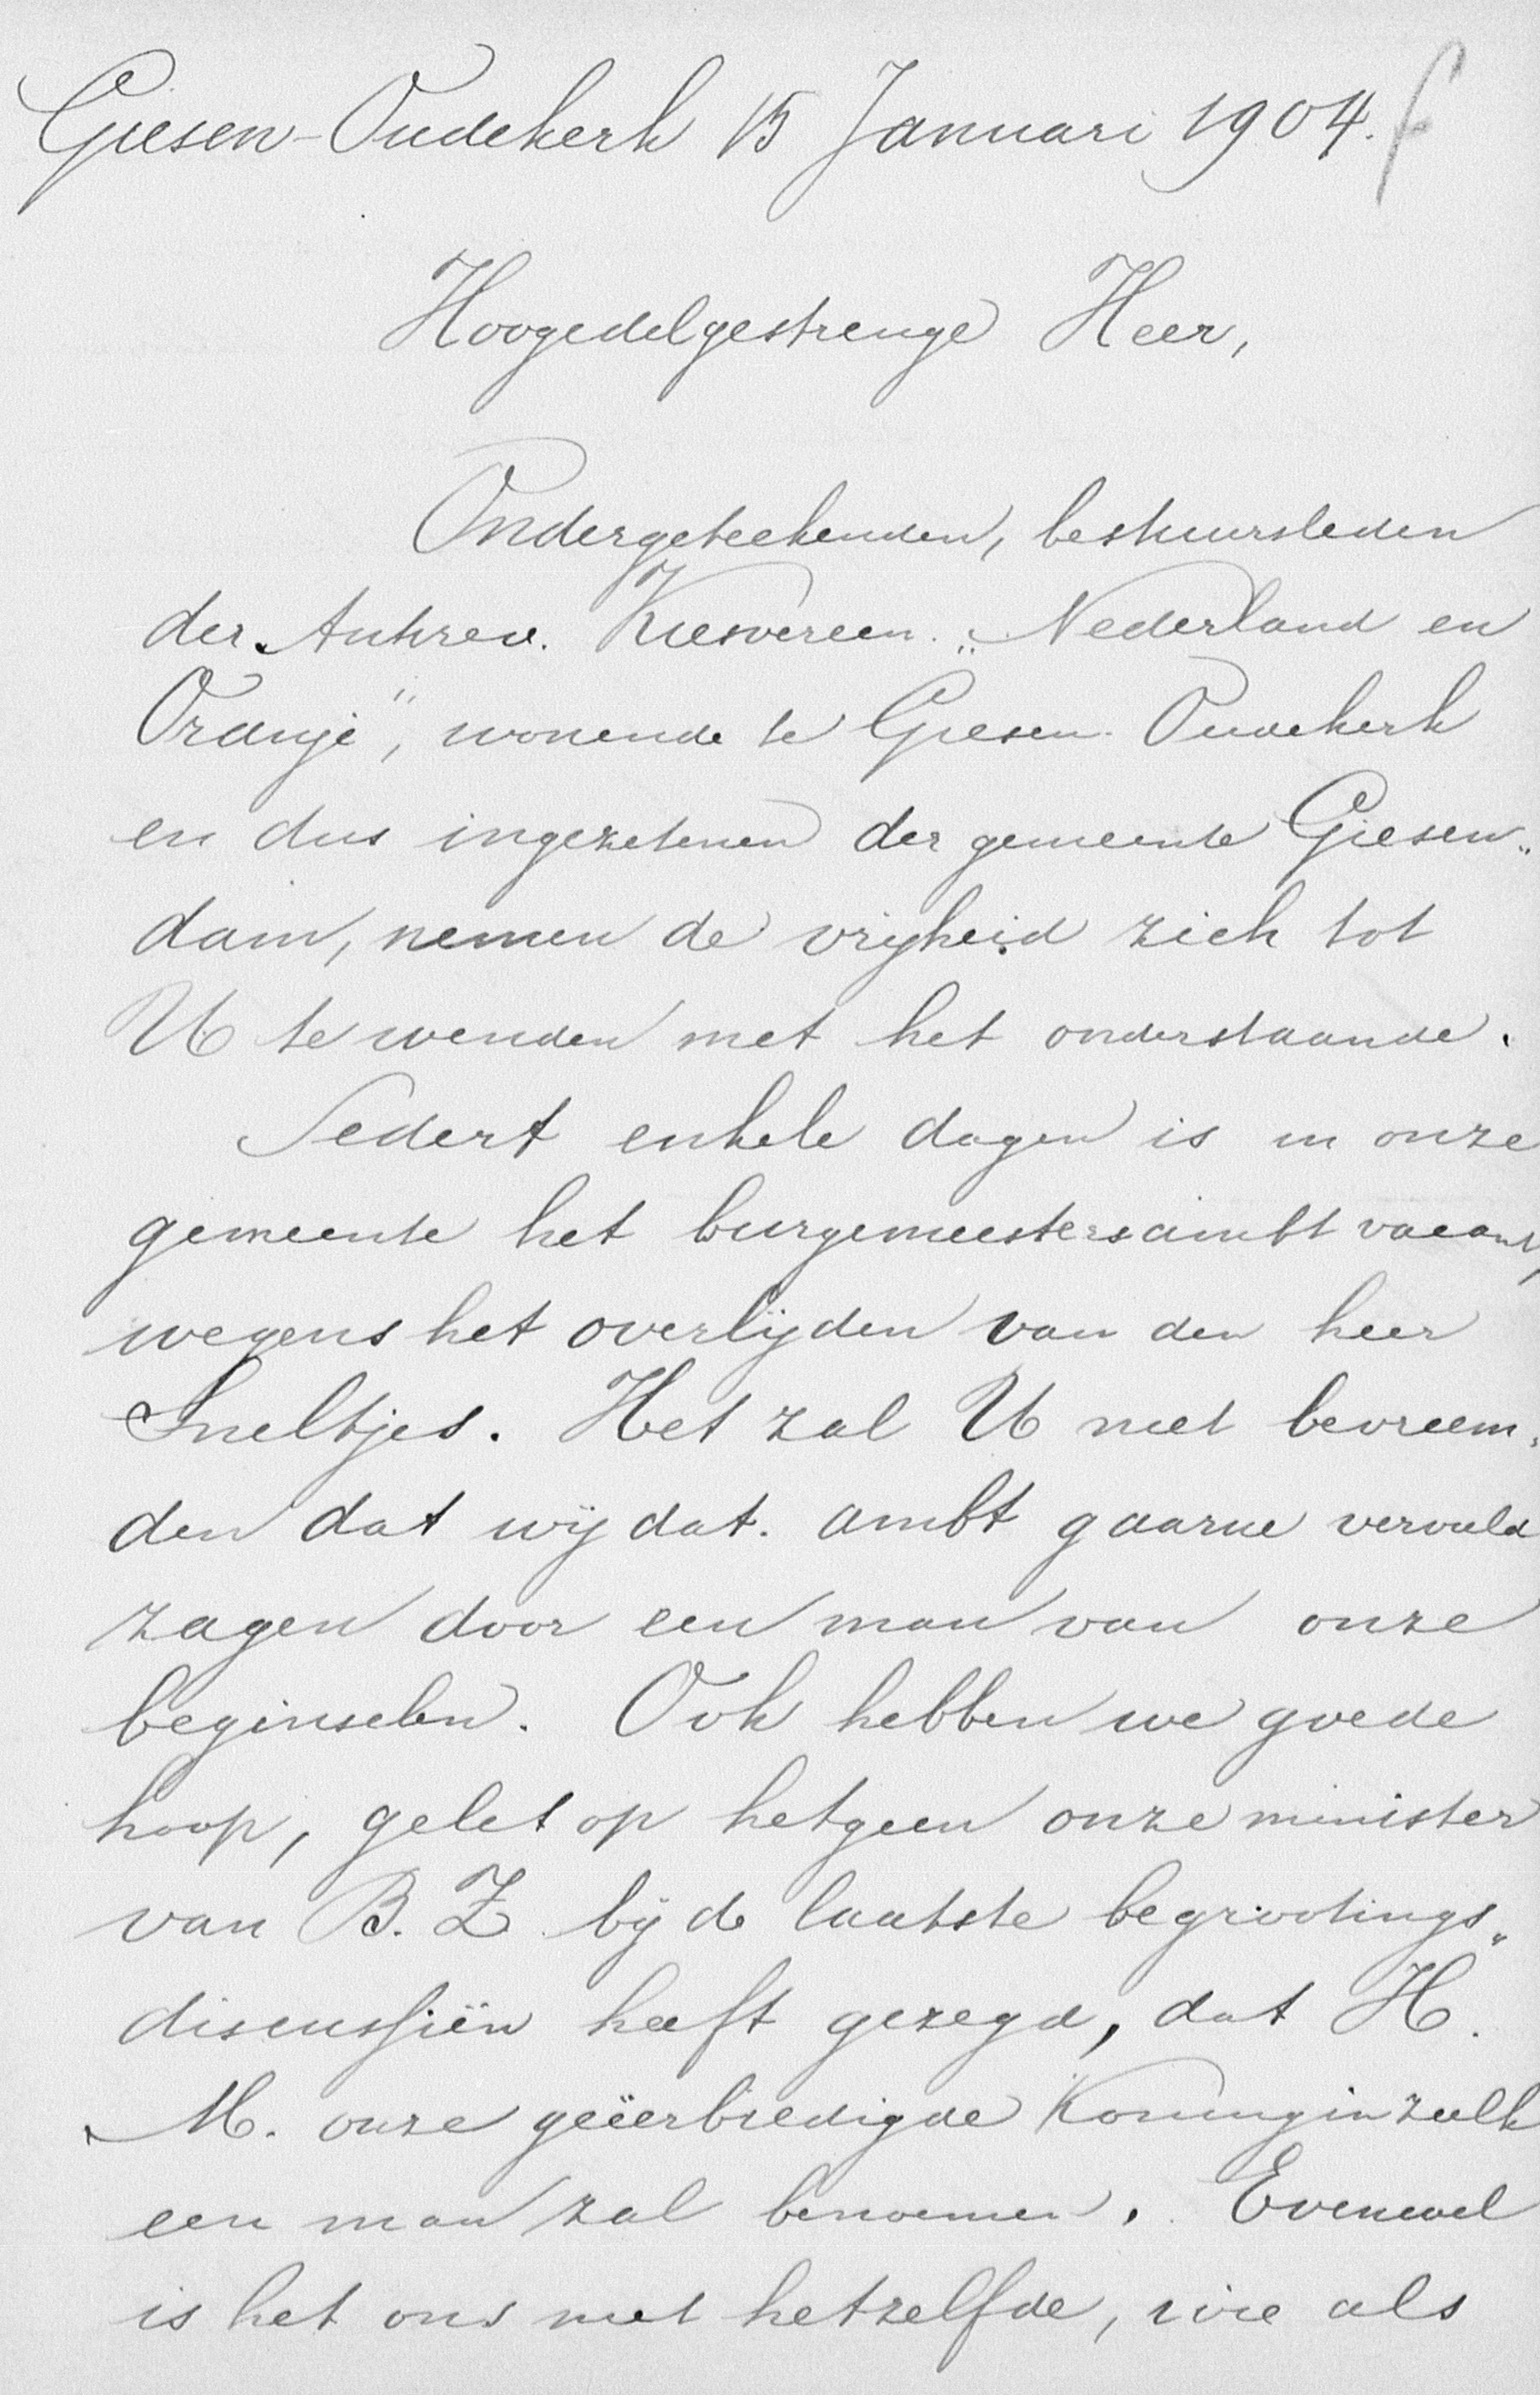 Giesen-Oudekerk 15 Januari 1904.
Hoogedelgestrenge Heer,
Ondergeteekenden, bestuursleden
der Antirev. Kiesvereen. „Nederland en
Oranje", wonende te Giesen-Oudekerk
en dus ingezetenen der gemeente Giesen„
dam, nemen de vrijheid zich tot
U te wenden met het onderstaande.
Sedert enkele dagen is in onze
gemeente het burgemeestersambt vacant,
wegens het overlijden van den heer
Sneltjes. Het zal U niet bevreem„
den dat wij dat ambt gaarne vervuld
zagen door een man van onze
beginselen. Ook hebben we goede
hoop, gelet op hetgeen onze minister
van B. Z. bij de laatste begrootings„
discussiën heeft gezegd, dat H.
M. onze geëerbiedigde Koningin zulk
een man zal benoemen. Evenwel
is het ons niet hetzelfde, wie als